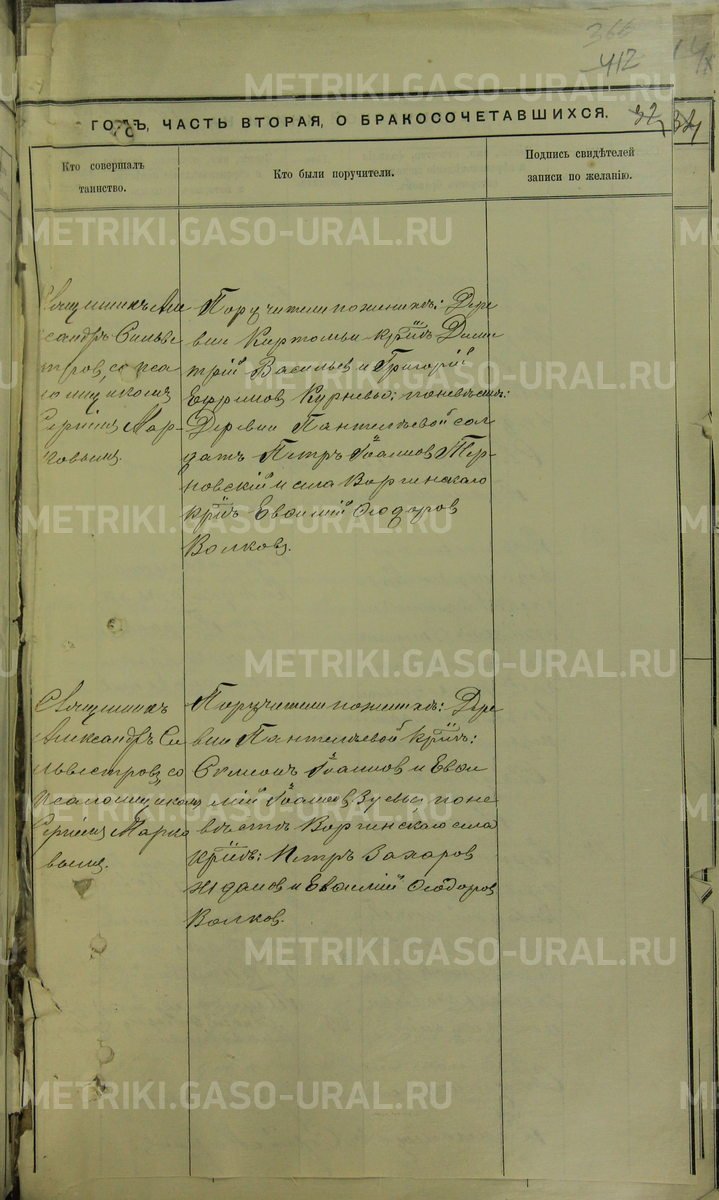 366
412
ГОДЪ, ЧАСТЬ ВТОРАЯ, О БРАКОСОЧЕТАВШИХСЯ.
Кто совершалъ
таинство.
Кто были поручители.
Подпись свидѣтелей
записи по желанію.
Священникъ Але
ксандръ Сильве
стровъ, со пса
ломщикомъ
Сергіемъ Мар-
ковымъ.
Поручители по женихѣ: Дере
вни Киртомки кр̃нъ Дими
трій Васильевъ и Григорій
Ефремовъ Курневы; по невѣстѣ:
Деревни Пантелѣевой сол
датъ Петръ Іоанновъ Тер
новскій и села Воргинскаго
кр̃нъ Евѳимій Ѳеодоровъ
Волковъ.
Священникъ
Александръ Си
львестровъ, со
псаломщикомъ
Сергіемъ Марко
вымъ.
Поручители по женихѣ: Дере
вни Пантелѣевой кр̃нъ:
Симонъ Іоанновъ и Евѳи
мій Іоанновъ Зуевы; по не
вѣстѣ Воргинскаго села
кр̃нъ: Петръ Захаровъ
Ждановъ и Евѳимій Ѳеодоровъ
Волковъ.
METRIKI.GASO-URAL.RU
METRIKI.GASO-URAL.RU
METRIKI.GASO-URAL.RU
METRIKI.GASO-URAL.RU
METRIKI.GASO-URAL.RU
METRIKI.GASO-URAL.RU
METRIKI.GASO-URAL.RU
METRIKI.GASO-URAL.RU